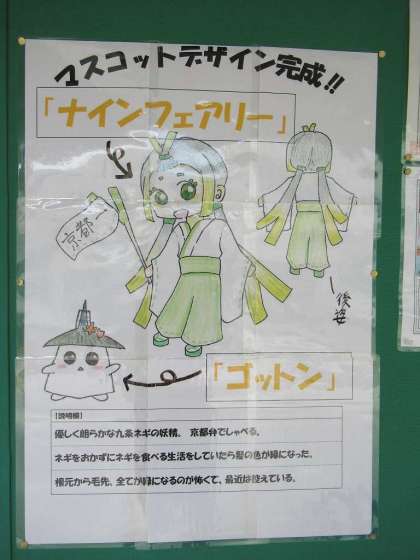 マスコットデザイン完成!!
「ナインフェアリー」
京都
後姿
「ゴットン」
【説明欄】
優しく朗らかな九条ネギの妖精。京都弁でしゃべる。
ネギをおかずにネギを食べる生活をしていたら髪の色が緑になった。
根元から毛先、全てが緑になるのが怖くて、最近は控えている。